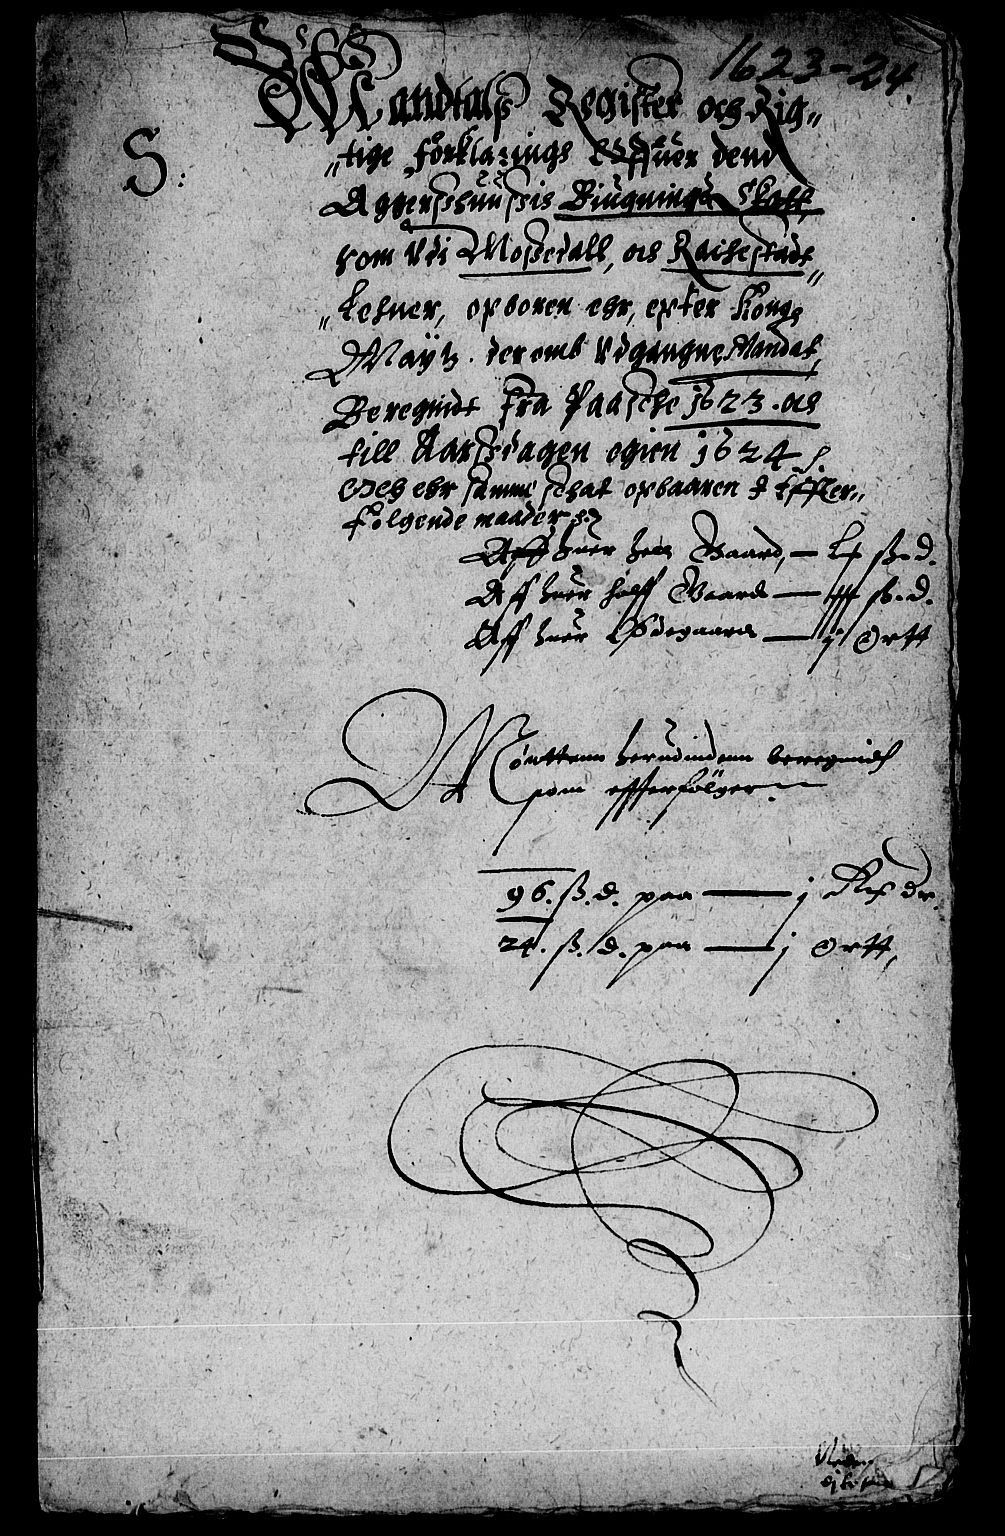 1623-24.
S:
Mandtals Register och Rig„
„tige forklarings Offuer dend
Aggershuussis Biugnings Skatt,
som Udi Mossedall, och Rachestadt„
„Lehner, opboren ehr, epter Kong:
Mayts. der omb Udgangne Mandat,
Beregnidt fra Paasche 1623. och
till Aarssdagen egien 1624
Och ehr samme schat opbaaren Effter„
Folgende maader
Aff huer heel Gaard, — ß. d.
Aff huer halff Gaard — ß. d.
Aff huer Ødegaard — j Ortt
Mÿntten herudindenn beregnidt
som effterfølger
96. ß. d. paa — j Rix dr.
24. ß. d. paa — j Ortt,